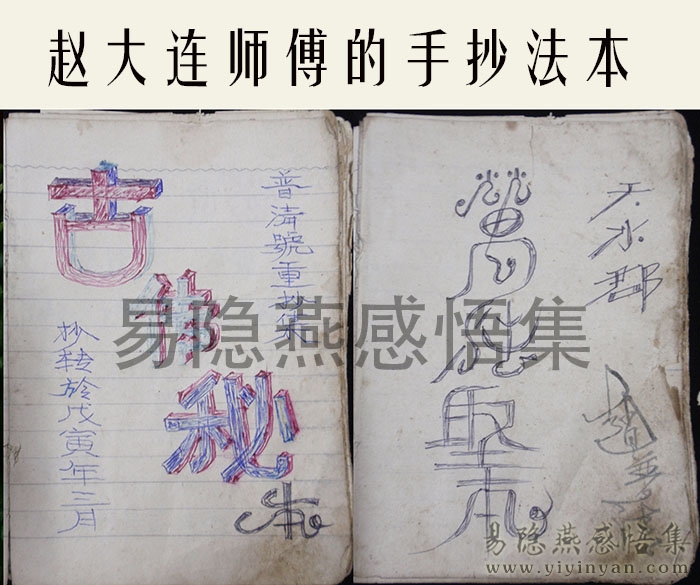 赵大连师傅的手抄法本
普清號重抄集
古
秘
本
抄转於戊寅年三月
天水郡
趙
萬
本
易隐燕感悟集
易隐燕感悟集
www.yiyinyan.com